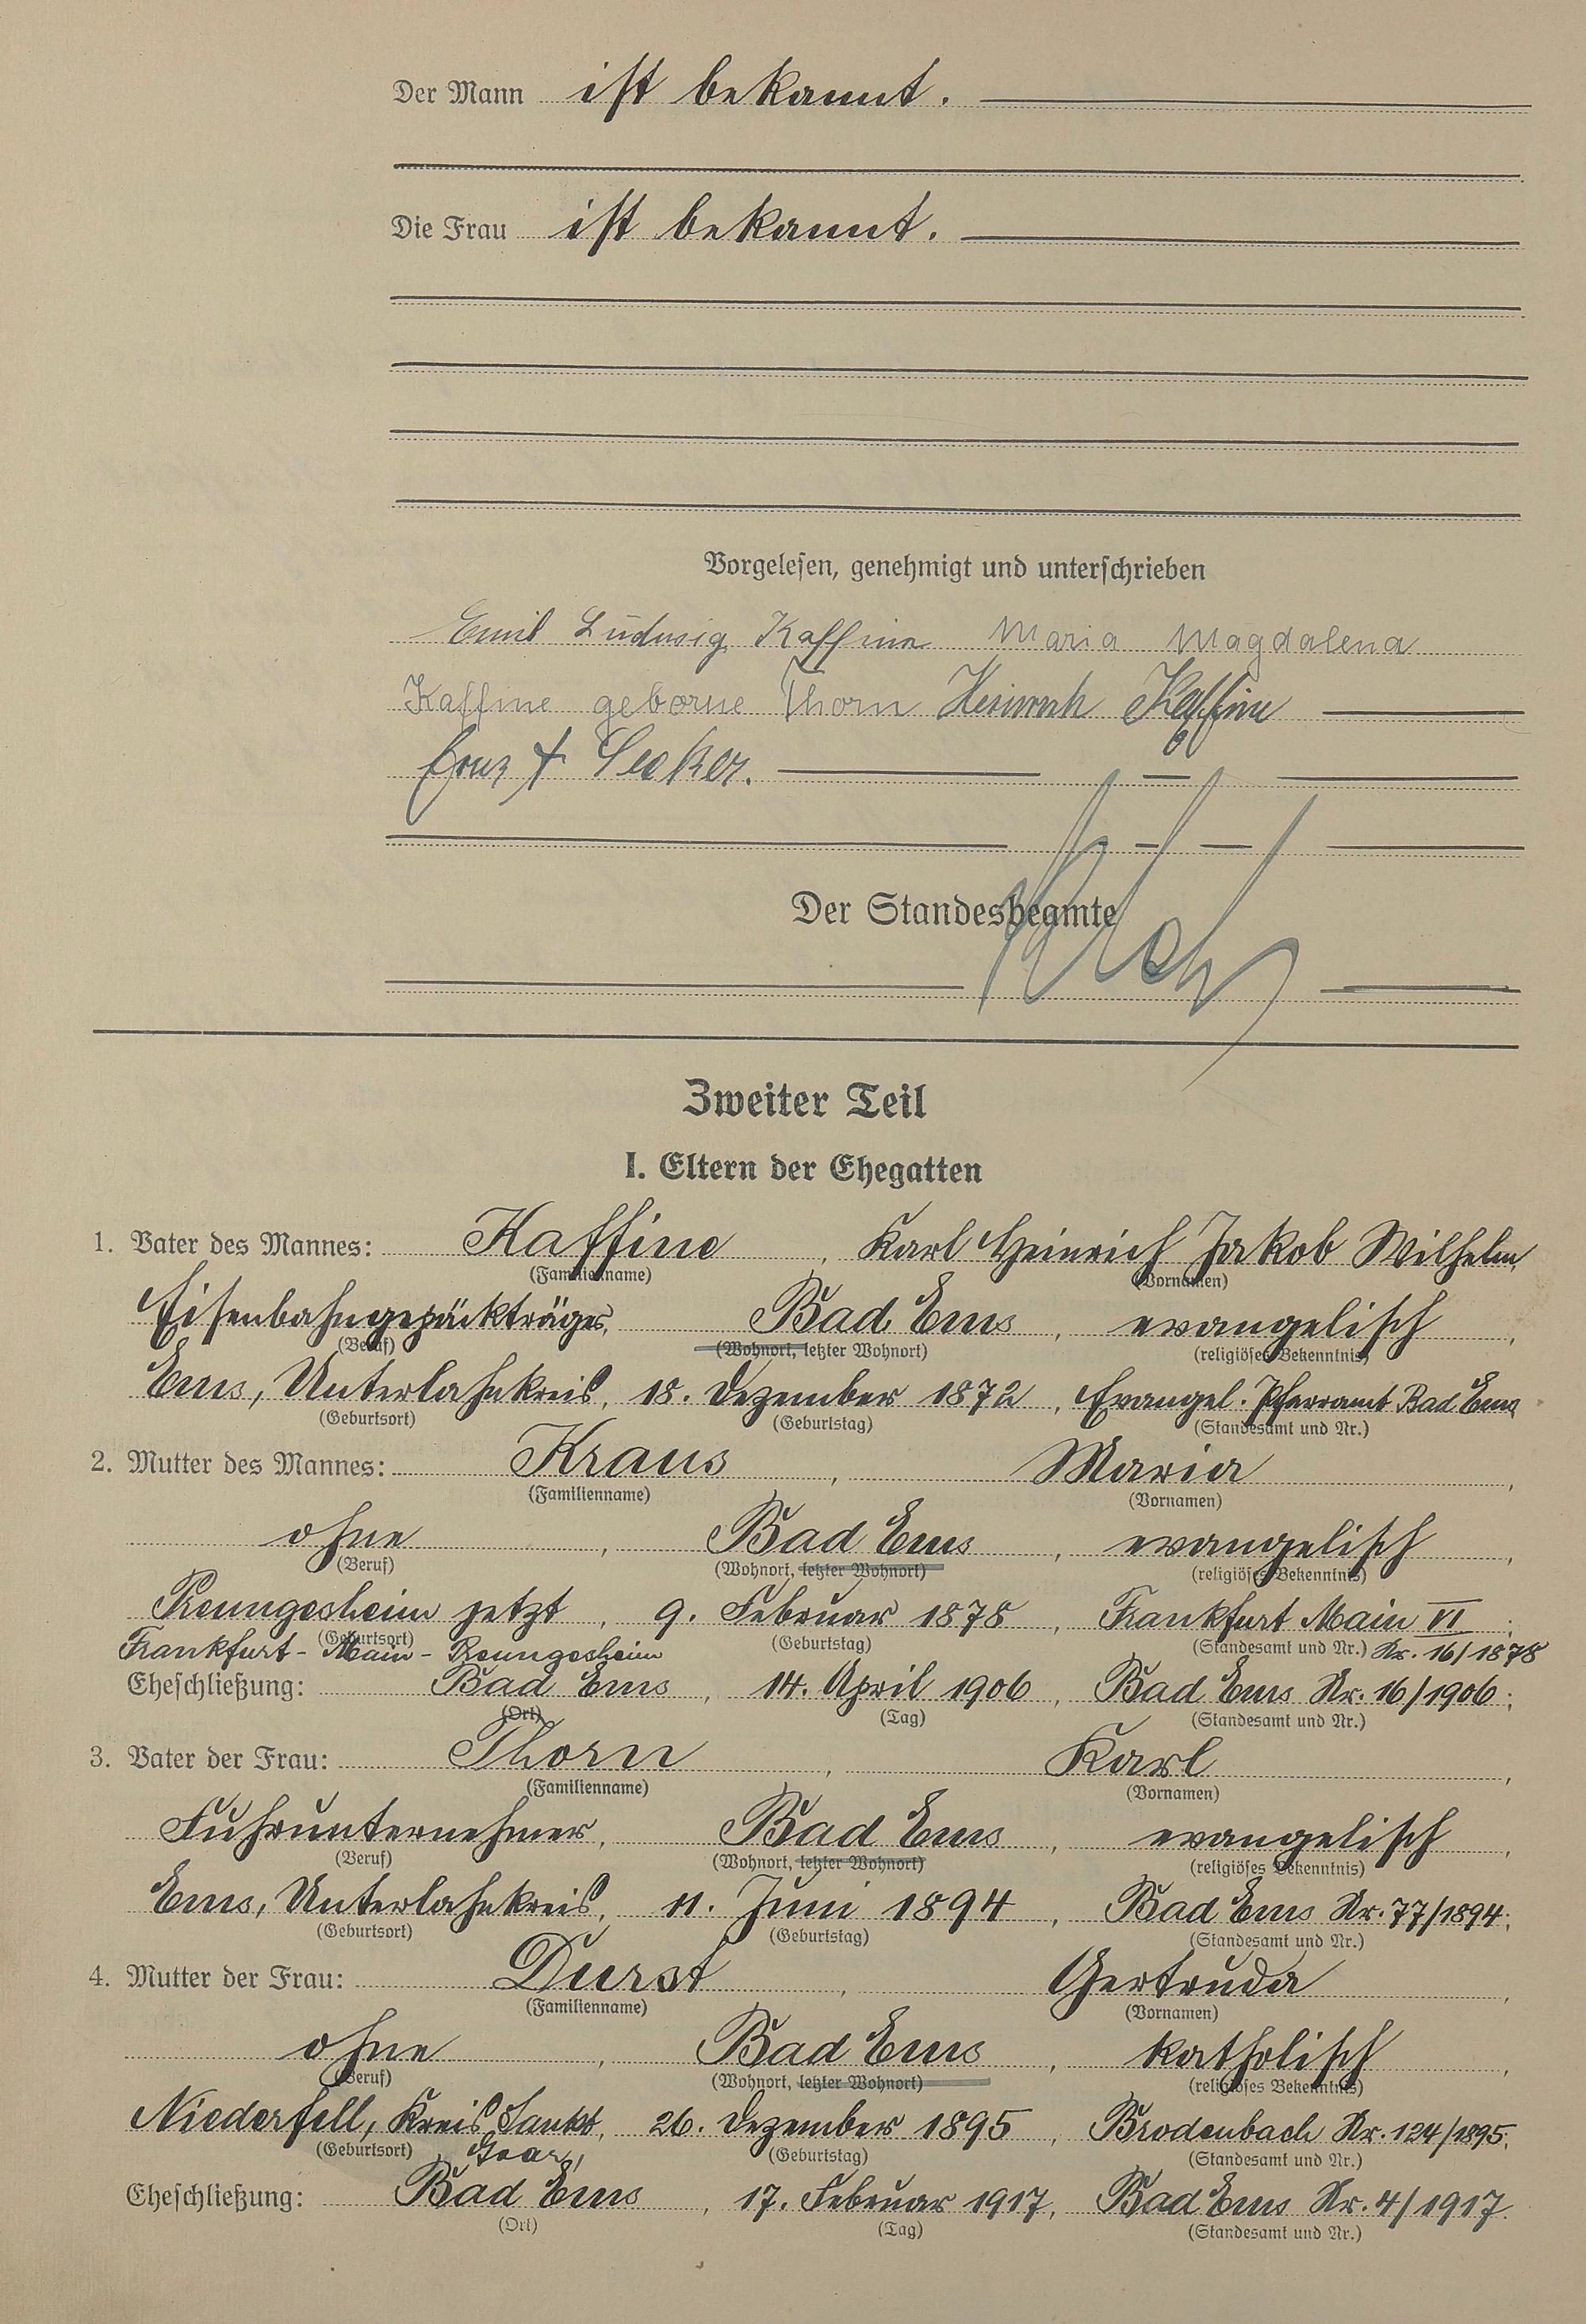 Der Mann ist bekannt.
Die Frau ist bekannt.
Vorgelesen, genehmigt und unterschrieben
Emil Ludwig Kaffine Maria Magdalena
Kaffine geborne Thorn Heinrich Kaffine
Der Standesbeamte
Zweiter Teil
I. Eltern der Ehegatten
1. Vater des Mannes: Kaffine, Karl Heinrich Jakob Wilhelm
(Familienname) (Vornamen)
Eisenbahngepäckträger, Bad Ems, evangelisch,
(Beruf) (Wohnort, letzter Wohnort) (religiöses Bekenntnis)
Ems, Unterlahnkreis, 18. Dezember 1872, Evangel. Pfarramt Bad Ems
(Geburtsort) (Geburtstag) (Standesamt und Nr.)
2. Mutter des Mannes: Kraus, Maria,
(Familienname) (Vornamen)
ohne, Bad Ems, evangelisch,
(Beruf) (Wohnort, letzter Wohnort) (religiöses Bekenntnis)
Preungesheim jetzt, 9. Februar 1878, Frankfurt Main VI;
(Geburtsort) (Geburtstag) (Standesamt und Nr.) Nr. 16/1878
Frankfurt-Main-Preungesheim
Eheschließung: Bad Ems, 14. April 1906, Bad Ems Nr. 16/1906;
(Ort) (Tag) (Standesamt und Nr.)
3. Vater der Frau: Thorn, Karl,
(Familienname) (Vornamen)
Fuhrunternehmer, Bad Ems, evangelisch,
(Beruf) (Wohnort, letzter Wohnort) (religiöses Bekenntnis)
Ems, Unterlahnkreis, 11. Juni 1894, Bad Ems Nr. 77/1894;
(Geburtsort) (Geburtstag) (Standesamt und Nr.)
4. Mutter der Frau: Durst, Gertruda,
(Familienname) (Vornamen)
ohne, Bad Ems, katholisch,
(Beruf) (Wohnort, letzter Wohnort) (religiöses Bekenntnis)
Niederfell, Kreis Sankt, 26. Dezember 1895, Brodenbach Nr. 124/1895;
(Geburtsort) Goar, (Geburtstag) (Standesamt und Nr.)
Eheschließung: Bad Ems, 17. Februar 1917, Bad Ems Nr. 4/1917.
(Ort) (Tag) (Standesamt und Nr.)